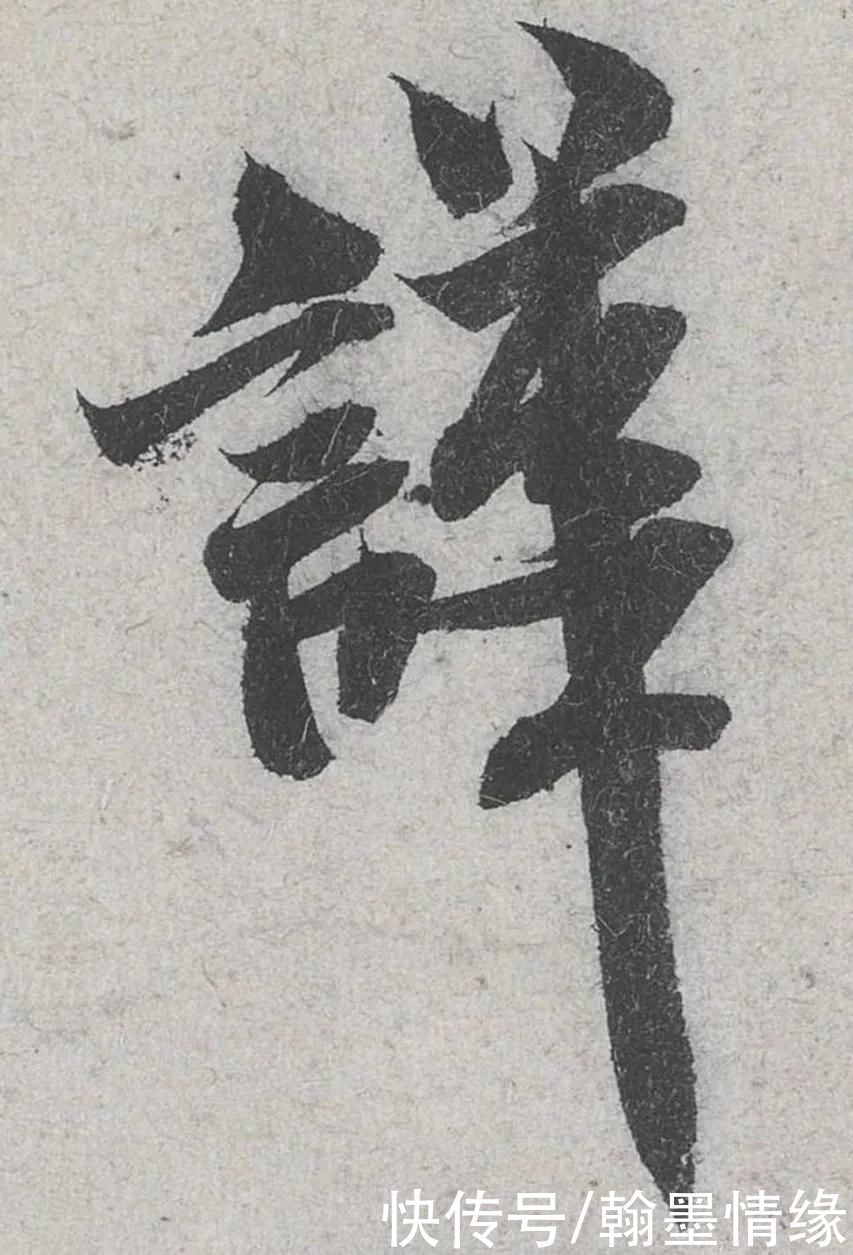 譁
快传号/翰墨情缘